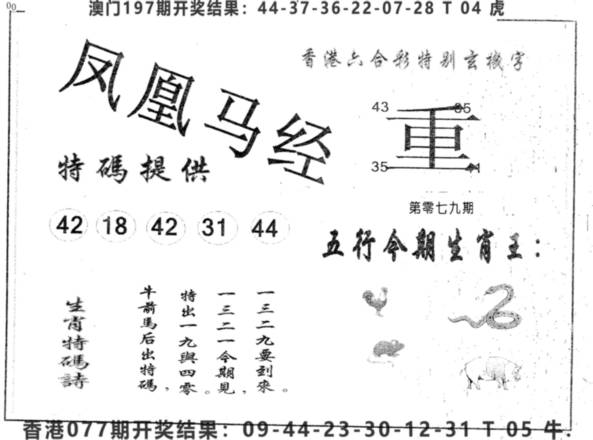 澳门197期开奖结果：44-37-36-22-07-28 T 04 虎
香港六合彩特别玄機字
凤凰马经
43
35
重
特碼提供
第零七九期
42 18 42 31 44
五行今期生肖王：
一三二九要到來。
一三二一今期見，
特出一九與四零。
牛前馬后出特碼，
生肖特碼詩
香港077期开奖结果：09-44-23-30-12-31 T 05 牛.